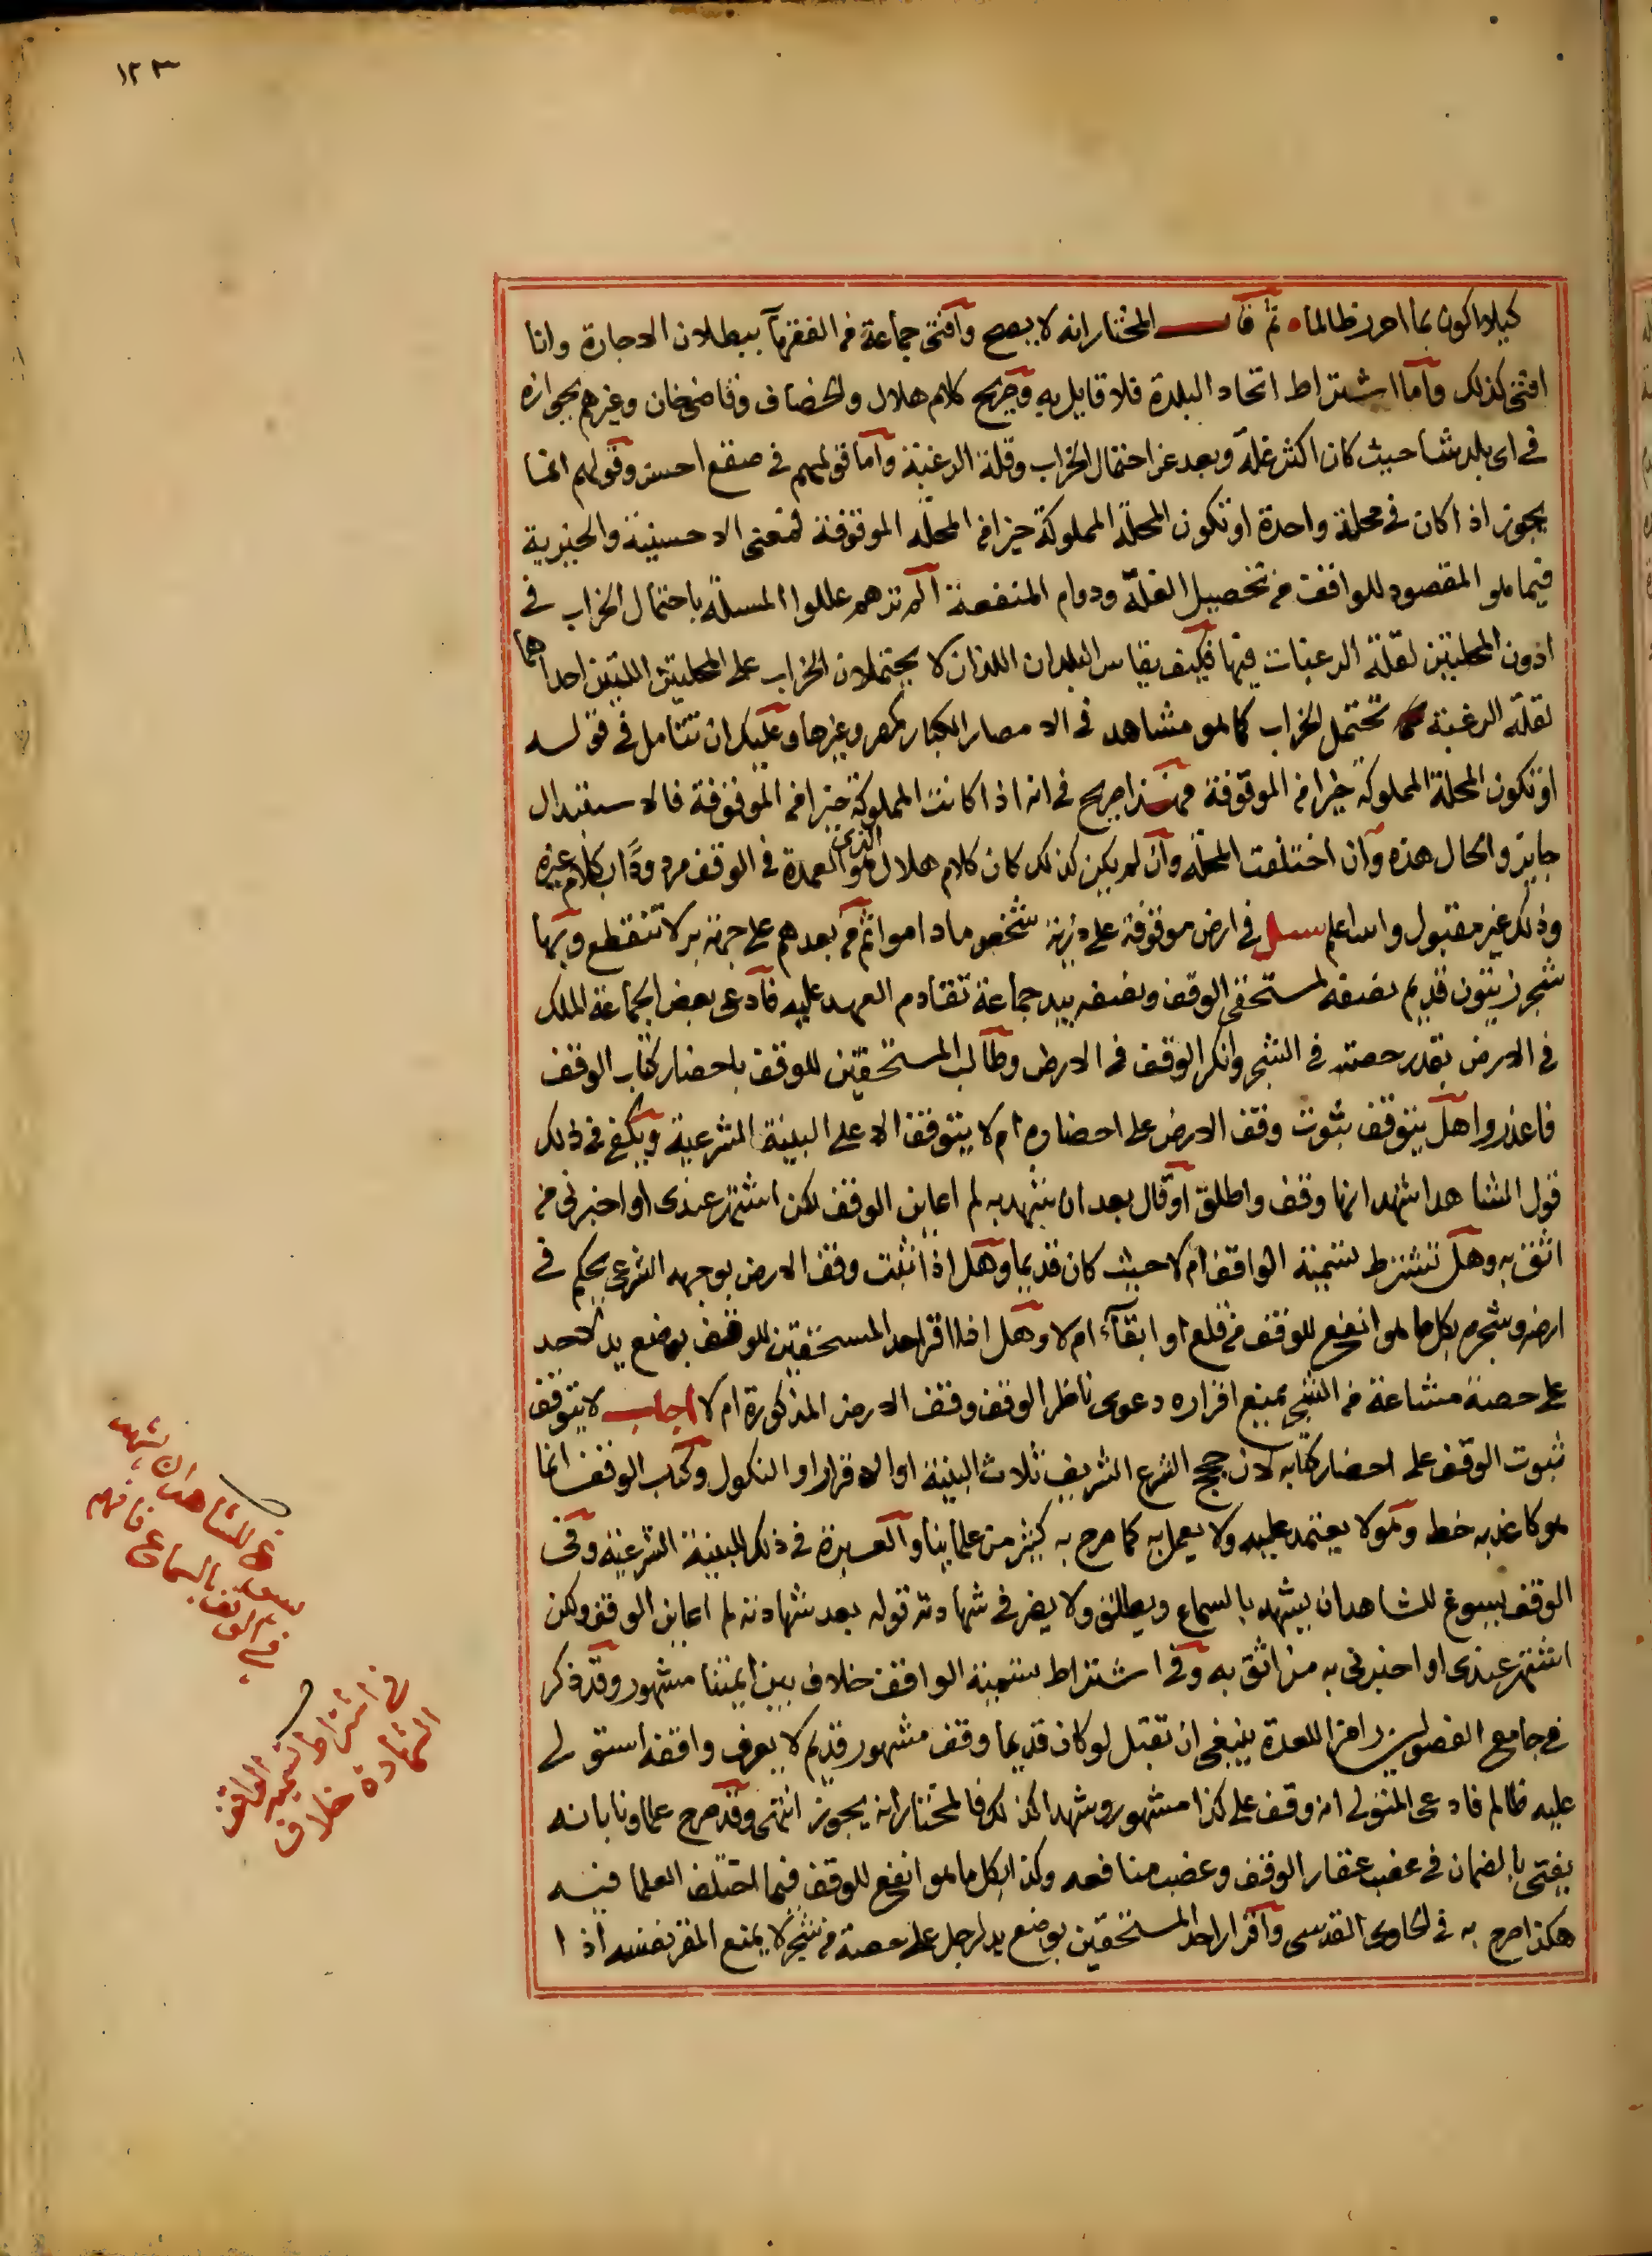 ١٢٣
كيلا اكون بما احرر ظالما ثم قال المختار انه لا يصح وافتى جماعة من الفقهآ ببطلان الاجارة وانا
افتى كذلك واما اشتراط اتحاد البلدة فلا قايل به وصريح كلام هلال والخصاف وقاضيخان وغيرهم بجوازه
في اى بلد شا حيث كان اكثر غلة وبعد عن احتمال الخراب وقلة الرغبة واما قولهم في صقع احسن وقولهم انما
يجوز اذا كان في محلة واحدة او تكون المحلة المملوكة خيرا من المحلة الموقوفة فمعنى الاحسنية والخيرية
فيما هو المقصود للواقف من تحصيل الغلة ودوام المنفعة الم ترهم عللوا المسئلة باحتمال الخراب في
ادون المحلتين لقلة الرغبات فيها فكيف يقاس البلدان اللذان لا يحتملان الخراب على المحلتين اللتين احداهما
لقلة الرغبة تحتمل الخراب كما هو مشاهد في الامصار الكبار كمصر وغيرها وعليك ان تتامل في قوله
او تكون المحلة المملوكة خيرا من الموقوفة فهذا صريح في انه اذا كانت المملوكة خيرا من الموقوفة فالاستبدال
جايز والحال هذه وان اختلفت المحلة وان لم يكن كذلك كان كلام هلال الذي هو العمدة في الوقف مردودًا بكلام غيره
وذلك غير مقبول والله اعلم سئل في ارض موقوفة على ذرية شخص ماداموا ثم من بعدهم على جهة بر لا تنقطع وبها
شجر زيتون قديم نصفه لمستحقى الوقف ونصفه بيد جماعة تقادم العهد عليه فادعى بعض الجماعة الملك
في الارض بقدر حصته في الشجر وانكر الوقف في الارض وطالب المستحقين للوقف باحضار كتاب الوقف
فاعذروا هل يتوقف ثبوت وقف الارض على احضاره ام لا يتوقف الا على البينة الشرعية ويكفى في ذلك
قول الشاهد اشهد انها وقف واطلق او قال بعد ان شهد به لم اعاين الوقف لكن اشتهر عندى او اخبرنى من
اثق به وهل تشترط تسمية الواقف ام لا حيث كان قديما وهل اذا ثبت وقف الارض بوجهه الشرعى يحكم في
ارضه وشجره بكل ما هو انفع للوقف من قلع او ابقآء ام لا وهل اذا اقر احد المستحقين للوقف بوضع يد لاحد
على حصة مشاعة من الشجر يمنع اقراره دعوى ناظر الوقف وقف الارض المذكورة ام لا اجاب لا يتوقف
ثبوت الوقف على احضار كتابه لان حجج الشرع الشريف ثلاث البينة او الاقرار او النكول وكتاب الوقف انما
هو كاغد به خط وهو لا يعتمد عليه ولا يعمل به كما صرح به كثير من علمائنا والعبرة في ذلك للبينة الشرعية وفى
الوقف يسوغ للشاهد ان يشهد بالسماع ويطلق ولا يضر في شهادته قوله بعد شهادته لم اعاين الوقف ولكن
اشتهر عندى او اخبرنى به من اثق به وفى اشتراط تسمية الواقف خلاف بين ايمتنا مشهور وقد ذكر
في جامع الفصولين رامزا للعدة ينبغى ان تقبل لو كان قديما وقف مشهور قديم لا يعرف واقفه استولى
عليه ظالم فادعى المتولى انه وقف على كذا مشهور وشهدا كذلك فالمختار انه يجوز انتهى وقد صرح علماونا بانه
يفتى بالضمان في غصب عقار الوقف وغصب منافعه وكذا بكل ما هو انفع للوقف فيما اختلف العلما فيه
هكذا صرح به في الحاوى القدسى واقرار احد المستحقين بوضع يد لرجل على حصة من شجر لا يمنع المقر نفسه اذا
يسوغ للشاهد ان يشهد
في الوقف بالسماع
في اشتراط تسمية الواقف
الشهادة خلاف